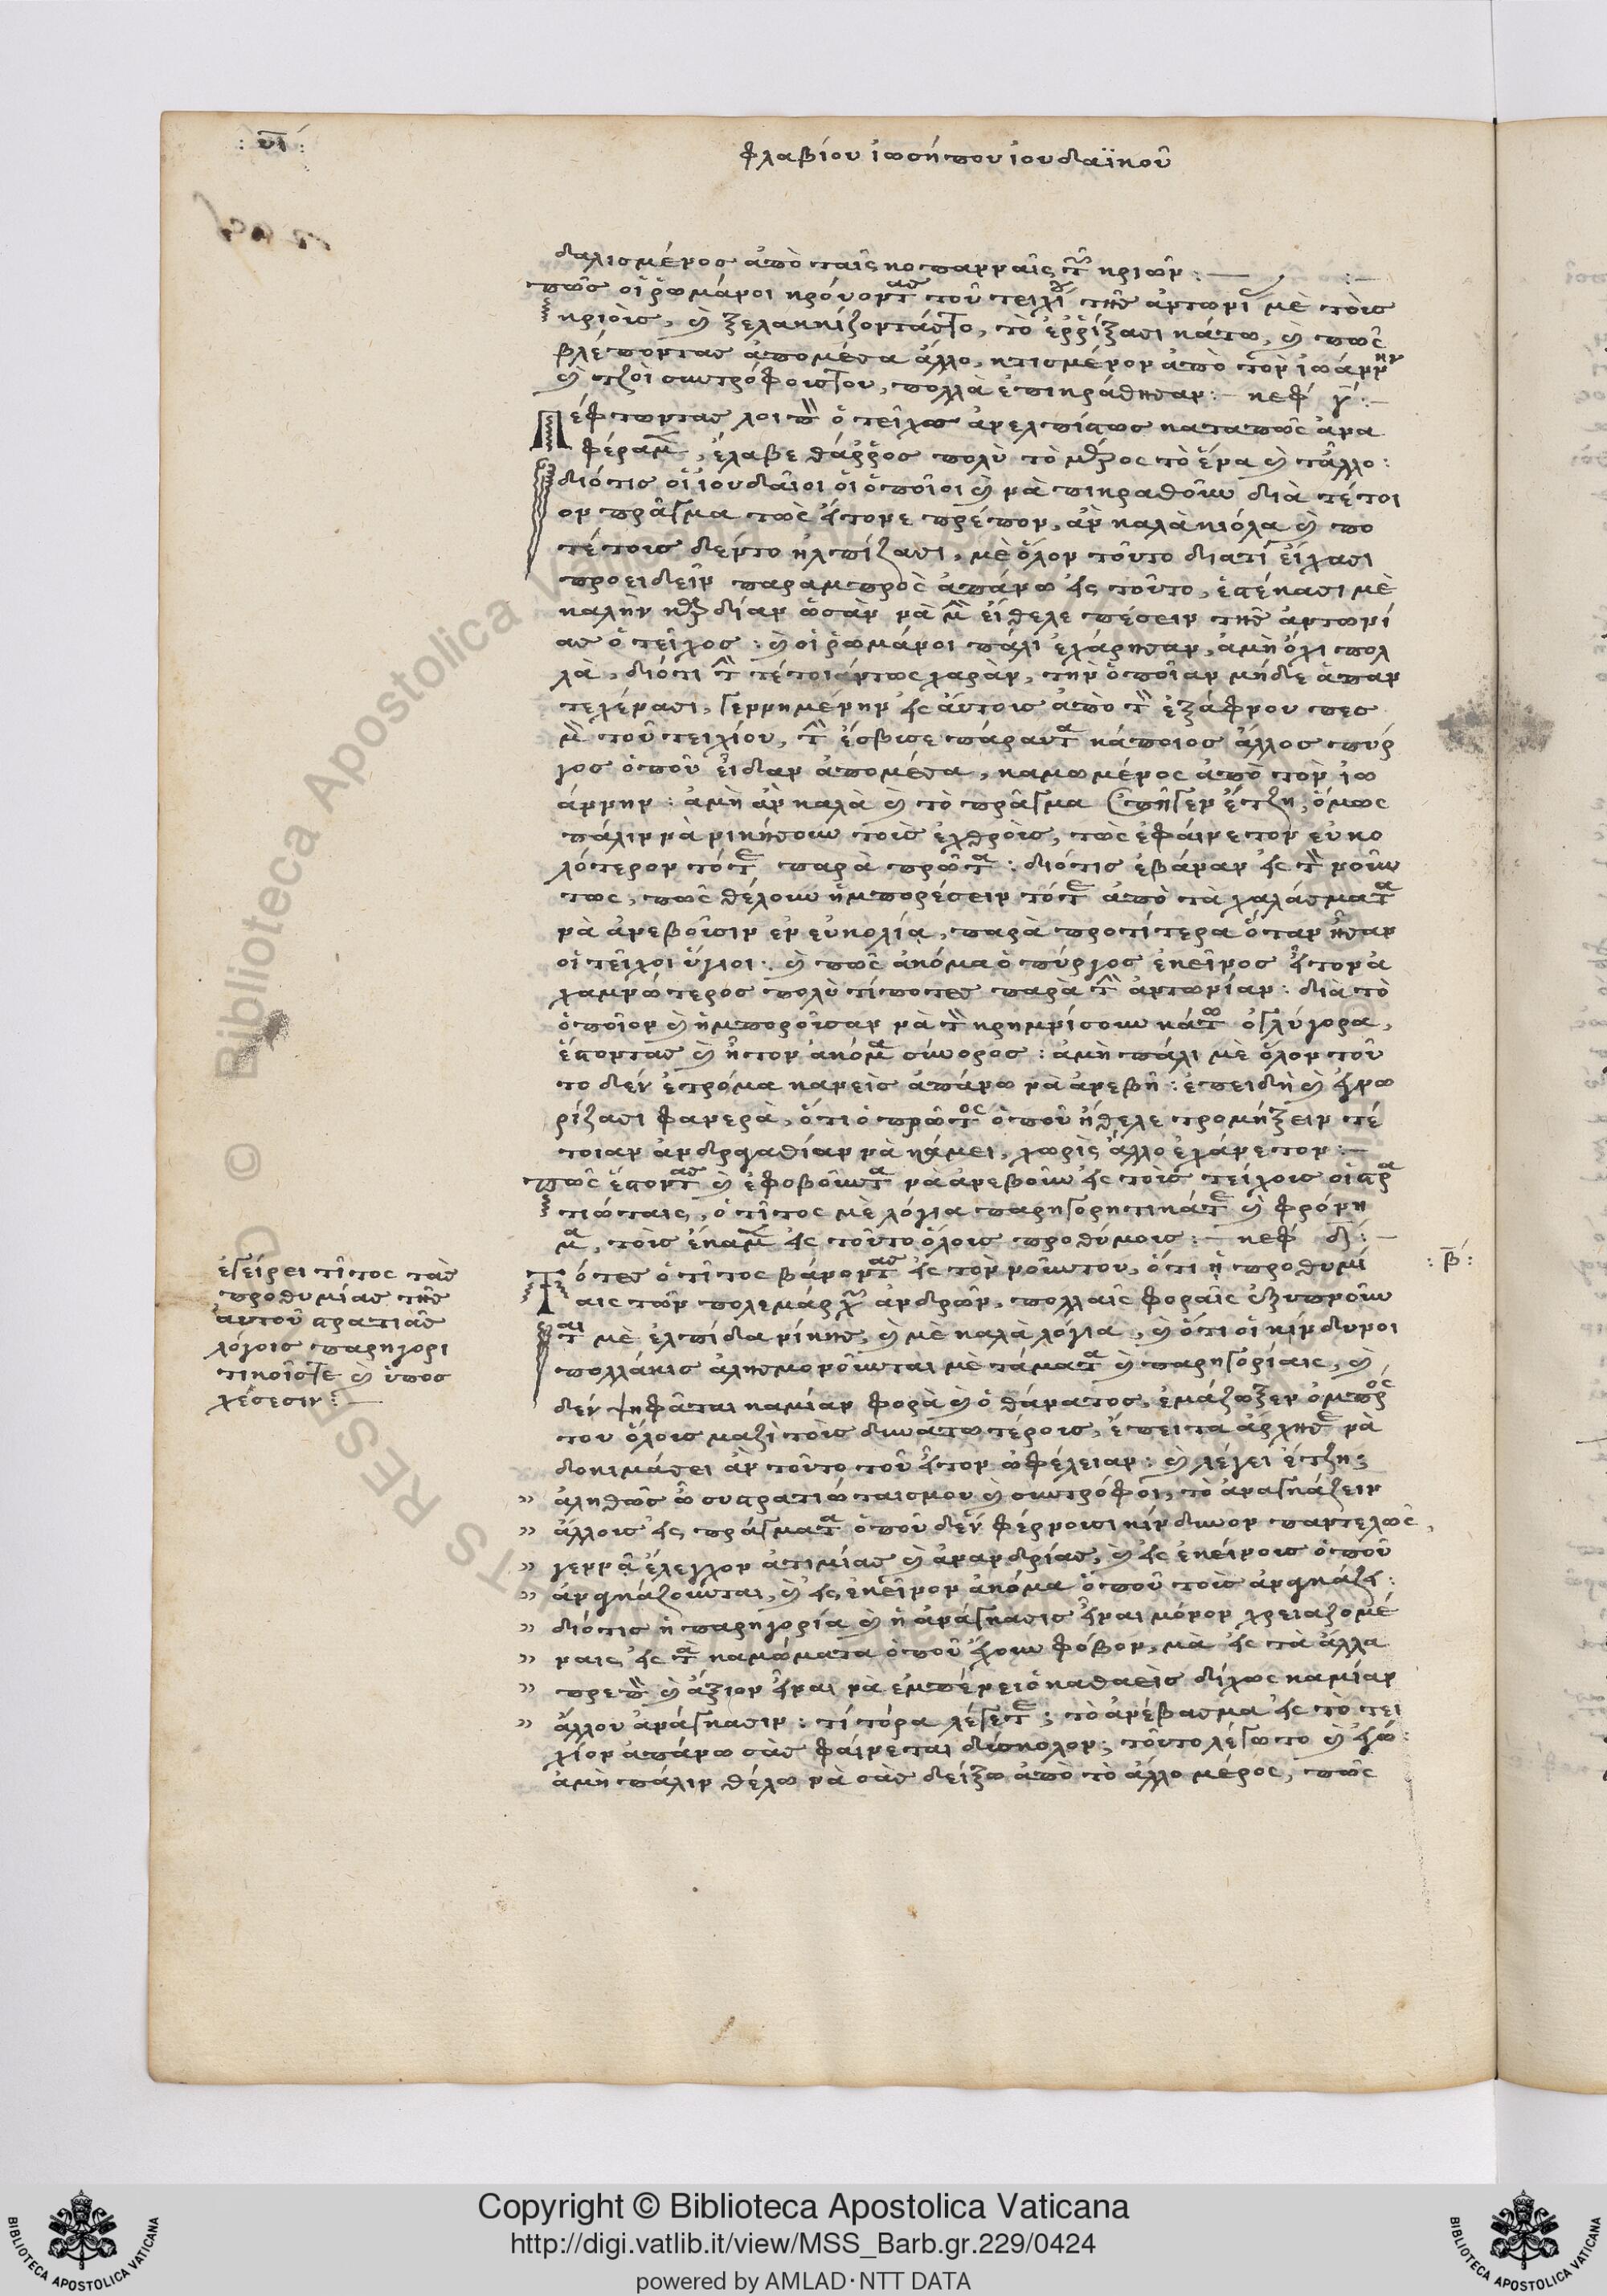 : υι :
φλαβίου ἰωσήπου ἰουδαϊκοῦ
δαλισμένος ἀπὸ ταῖς κοπανναῖς τῶν κριῶν :—
πῶς οἱ ῥωμάνοι κρούοντας τοῦ τειχίου τῆς ἀντωνί μὲ τοὺς
κριοὺς, καὶ ξελακκίζοντάστο, τὸ ἐῤῥίξασι κάτω, καὶ πῶς
βλέποντας ἀπομέσα ἄλλο, κτισμένον ἀπὸ τὸν ἰωάννην
καὶ τζοὶ συντρόφουστου, πολλὰ ἐπικράθησαν :— κεφ γ :—
Πέφτωντας λοιπὸν ὁ τεῖχος ἀνελπίστως καταπῶς ἀνα
φέραμεν, ἔλαβε θάῤῥος πολὺ τὸ μέρος τὸ ἕνα καὶ τἄλλο :
διότις οἱ ἰουδαῖοι οἱ ὁποῖοι καὶ νὰ πικραθοῦν διὰ τέτοι
ον πρᾶγμα τὼς ἤτονε πρέπον, ἂν καλὰ κιόλα καὶ πο
τέτοις δέντο ἠλπίζασι, μὲ ὅλον τοῦτο διατί εἴχασι
προειδεῖν παραμπρὸς ἀπάνω εἰς τοῦτο, ἐστέκασι μὲ
καλὴν καρδίαν ὡσὰν νὰ μὴν εἴθελε πέσειν τῆς ἀντωνί
ας ὁ τεῖχος : καὶ οἱ ῥωμάνοι πάλι ἐχάρησαν, ἀμὴ ὄχι πολ
λὰ, διότι τὴν τέτοιάντως χαρὰν, τὴν ὁποῖαν μήδε ἀπαν
τεχένασι, γεννημένην εἰς αὐτους ἀπὸ τὸν ἐξάφνου πεσ
μὸν τοῦ τειχίου, τὴν ἔσβισε πάραυτα κάποιος ἄλλος πύρ
γος ὁποῦ εἶδαν ἀπομέσα, καμωμένος ἀπὸ τὸν ἰω
άννην : ἀμὴ ἂν καλὰ καὶ τὸ πρᾶγμα ἐπῆγεν ἔτζη, ὅμως
πάλιν νὰ νικήσουν τοὺς ἐχθροὺς, τὼς ἐφαίνετον εὐκο
λότερον τότε παρὰ πρῶτα : διότις ἐβάναν εἰς τὸν νοῦν
τως, πῶς θέλουν ἠμπορέσειν τότε ἀπὸ τὰ χαλάσματα
νὰ ἀνεβοῦσιν ἐν εὐκολίᾳ, παρὰ προτίτερα ὅταν ἦσαν
οἱ τεῖχοι ὕγιοι : καὶ πῶς ἀκόμα ὁ πύργος ἐκεῖνος ἤτον ἀ
χαμνώτερος πολὺ τίποτες παρὰ τὴν ἀντωνίαν : διὰ τὸ
ὁποῖον καὶ ἠμποροῦσαν νὰ τὸν κρημνίσουν κάτω ὀγλύγορα,
ἔστοντας καὶ ἦτον ἀκόμα σύωρος : ἀμὴ πάλι μὲ ὅλον τοῦ
το δὲν ἐτρόμα κανεὶς ἀπάνω νὰ ἀνεβῆ : ἐπειδὴ καὶ ἐγνω
ρίζασι φανερὰ, ὅτι ὁ πρῶτος ὁποῦ ἤθελε τρομήξειν τέ
τοιαν ἀνδραγαθίαν νὰ κάμει, χωρὶς ἄλλο ἐχάνετον :—
πῶς ἔστοντας καὶ ἐφοβοῦντα νὰ ἀνεβοῦν εἰς τοὺς τείχους οἱ στρα
τιώταις, ὁ τίτος μὲ λόγια παρηγορητικάτε καὶ φρόνη
μα, τοὺς ἔκαμεν εἰς τοῦτο ὅλους προθύμους :— κεφ δ :—
Τότες ὁ τίτος βάνοντας εἰς τὸν νοῦντου, ὅτι ἡ προθυμί : β :
αις τῶν πολεμάρχων ἀνδρῶν, πολλαῖς φοραῖς ἐξυπνοῦν
ται μὲ ἐλπίδα νίκης, καὶ μὲ καλὰ λόγια, καὶ ὅτι οἱ κίνδυνοι
πολλάκις ἀλησμονοῦνται μὲ τάματα καὶ παρηγορίαις, καὶ
δὲν ψηφᾶται καμίαν φορὰ καὶ ὁ θάνατος, ἐμάζωξεν ὀμπρός
του ὅλους μαζὶ τοὺς δυνατωτέρους, ἔπειτα ἀρχῆσε νὰ
δοκιμάσει ἂν τοῦτο τοῦ ἤτον ὠφέλειαν : καὶ λέγει ἔτζη :
» ἀληθῶς ὦ συστρατιώταισμου καὶ συντρόφοι, τὸ ἀναγκάζειν
» ἄλλους εἰς πράγματα ὁποῦ δὲν φέρνουσι κίνδυνον παντελῶς,
» γεννᾶ ἔλεγχον ἀτιμίας καὶ ἀνανδρίας, καὶ εἰς ἐκείνους ὁποῦ
» ἀναγκάζουνται, καὶ εἰς ἐκεῖνον ἀκόμα ὁποῦ τοὺς ἀναγκάζει :
» διότις ἡ παρηγορία καὶ ἡ ἀνάγκασις εἶναι μόνον χρειαζομέ
» ναις εἰς τὰ καμώματα ὁποῦ ἔχουν φόβον, μὰ εἰς τὰ ἄλλα
» πρεπὸν καὶ ἄξιον εἶναι νὰ ἐμπένει ὁ καθαεὶς δίχως καμίαν
» ἄλλου ἀνάγκασιν : τί τόρα λέγετε; τὸ ἀνέβασμα εἰς τὸ τει
χίον ἀπάνω σὰς φαίνεται δύσκολον; τοῦτο λέγω το καὶ ἐγώ :
ἀμὴ πάλιν θέλω νὰ σὰς δείξω ἀπὸ τὸ ἄλλο μέρος, πῶς
ἐγείρει τίτος τὰς
προθυμίας τῆς
αὐτοῦ στρατιᾶς
λόγοις παρηγορι
τικοῖστε καὶ ὑποσ
χέσεσιν :—
Copyright © Biblioteca Apostolica Vaticana
http://digi.vatlib.it/view/MSS_Barb.gr.229/0424
powered by AMLAD·NTT DATA
BIBLIOTECA APOSTOLICA VATICANA
BIBLIOTECA APOSTOLICA VATICANA